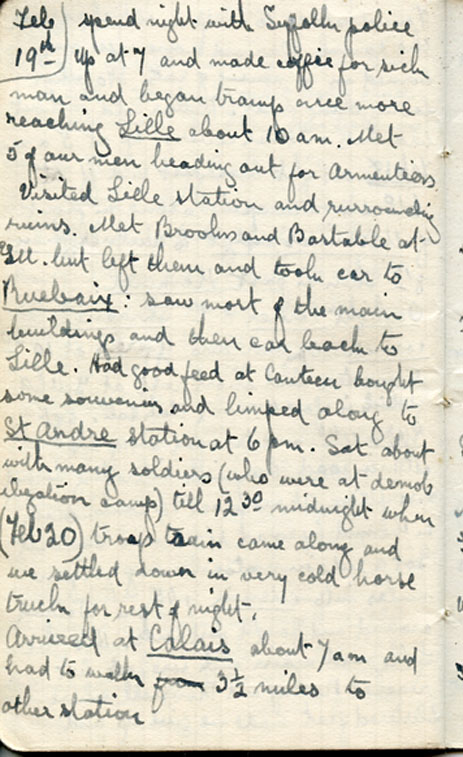 Feb spend night with Suffolk police
19th up at 7 and made coffee for sick
man and began tramp once more
reaching Lille about 10 am. Met
5 of our men heading out for Armentiers
Visited Lille station and surrounding
ruins. Met Brooks and Bartable at
but left them and took car to
Roubaix: saw most of the main
buildings and then car back to
Lille. Had good feed at Canteen bought
some souvenirs and limped along to
St Andre station at 6 pm. Sat about
with many soldiers (who were at demob
ilization camp) till 12 30 midnight when
(Feb 20) troop train came along and
we settled down in very cold horse
truck for rest of night.
Arrived at Calais about 7 am and
had to walk from 3½ miles to
other station